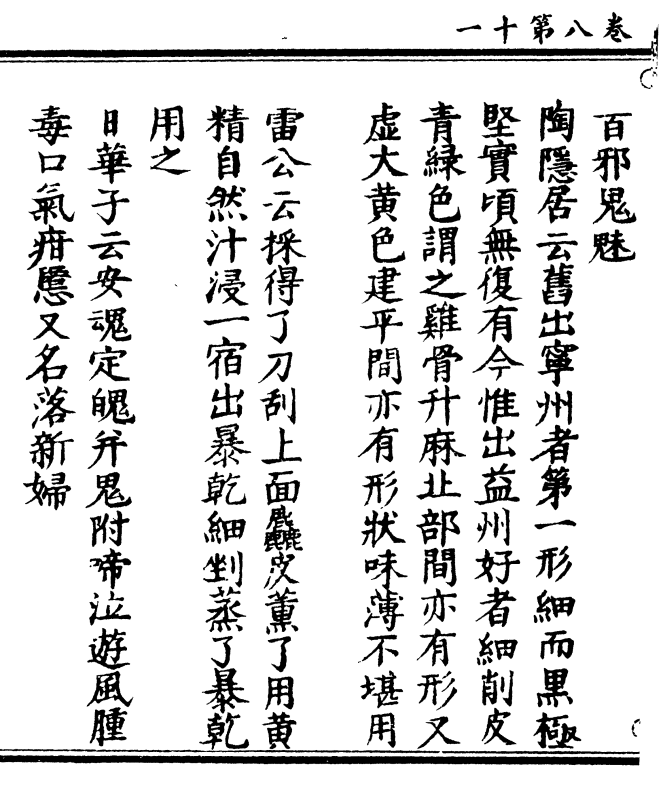 卷八第十一
百邪鬼魅
陶隱居云舊出寧州者第一形細而黑極
堅實頃無復有今惟出益州好者細削皮
青綠色謂之雞骨升麻北部間亦有形又
虛大黃色建平間亦有形狀味薄不堪用
雷公云採得了刀刮上面麤皮薰了用黃
精自然汁浸一宿出暴乾細剉蒸了暴乾
用之
日華子云安魂定魄并鬼附啼泣遊風腫
毒口氣疳䘌又名落新婦